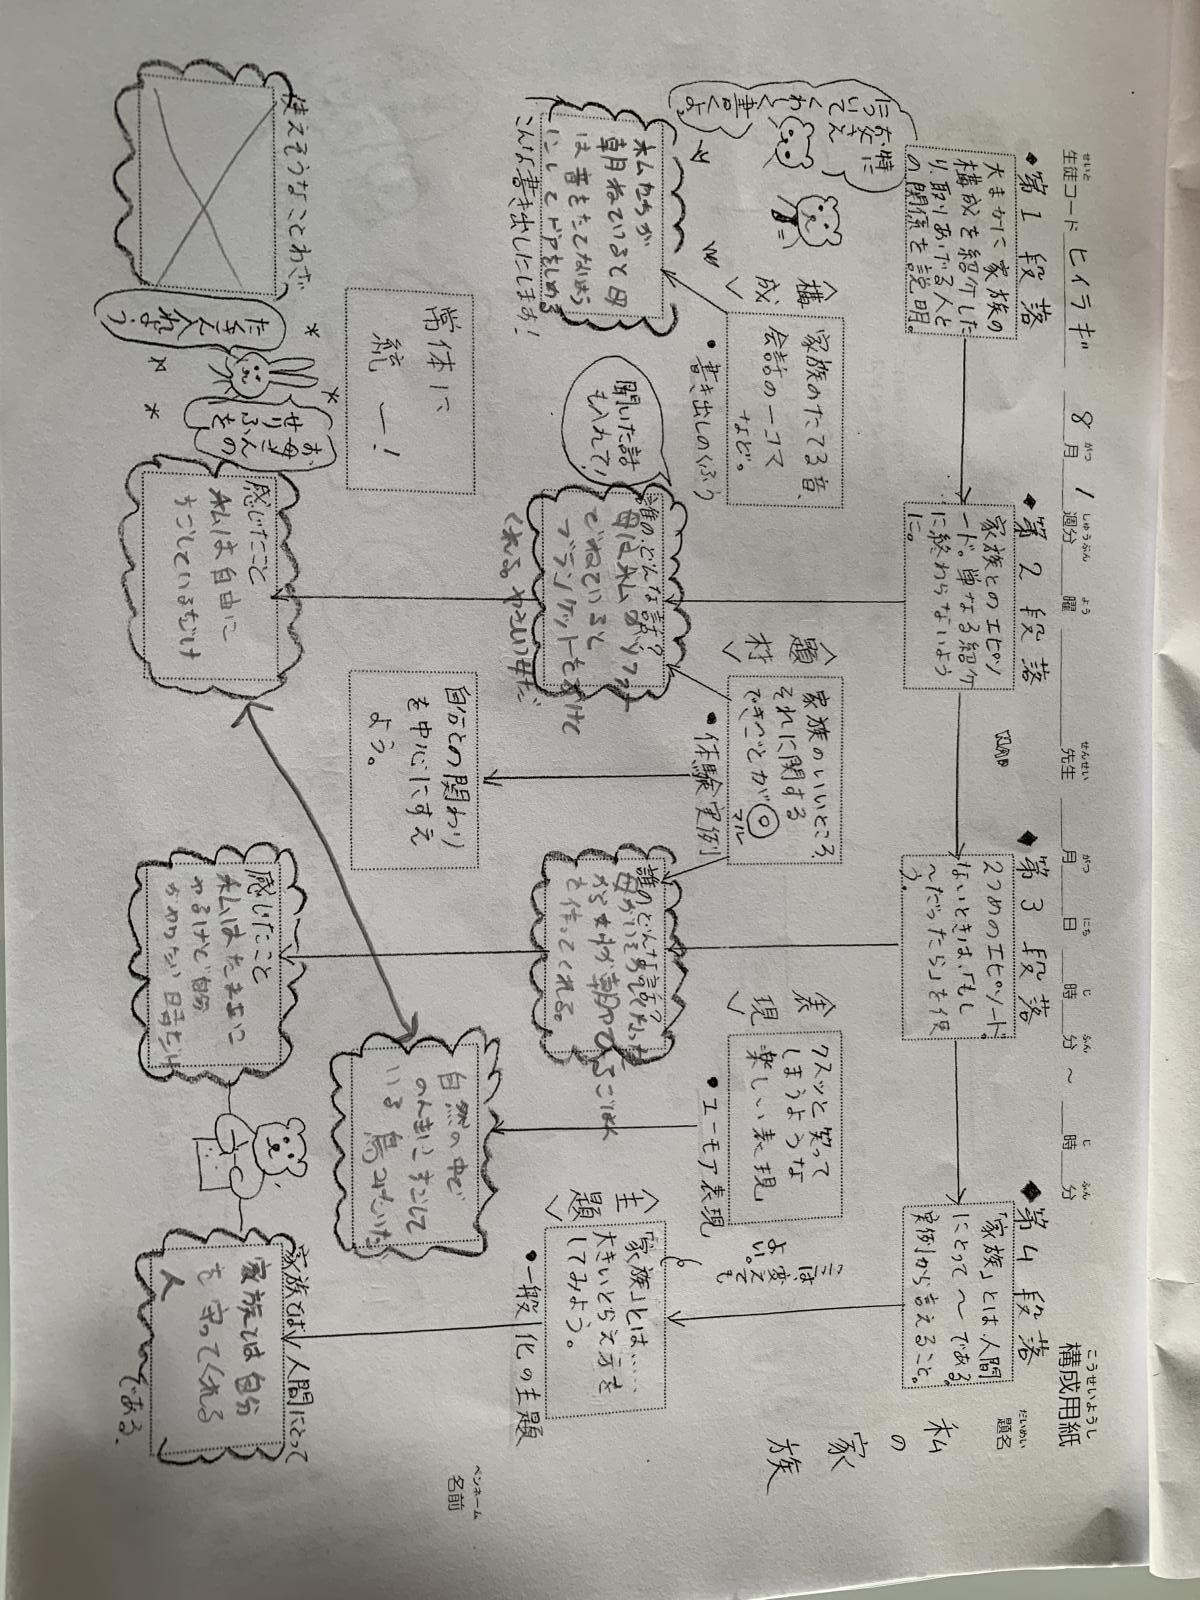 構成用紙
こうせいようし
生徒コード ヒイラギ 8月1週分 曜 先生 月 日 時 分 ～ 時 分
せいと がつ しゅうぶん よう せんせい がつ にち じ ふん じ ふん
題名
だいめい
私の家族
ペンネーム
名前
◆第1段落
大まかに家族の
構成を紹介した
り、取りあげる人と
の関係を説明。
◆第2段落
家族とのエピソ
ード。単なる紹介
に終わらないよう
に。
◆第3段落
2つめのエピソード。
ないときは、「もし
～だったら」を使
う。
◆第4段落
「家族」とは人間
にとって～である。
実例から言えること。
特に
お父
について
くわしく
書くよ
〈構成〉
家族のたてる音、
会話の一コマ
など。
●書き出しのくふう
私たちが
朝ねていると母
は音をたてないよう
にしてドアをしめる
こんな書き出しにします!
〈題材〉
家族のいいところ、
それに関する
できごとが◎
マル
●体験実例
聞いた話
も入れて!
誰の、どんな話?
母は私がソファー
でねていると
ブランケットをかけて
くれる。やさしい母だ
誰のどんな話?
母がいそがしくなった
を作ってくれる。
〈表現〉
クスッと笑って
しまうような
楽しい表現
●ユーモア表現
〈主題〉
「家族」とは……
大きいとらえ方を
してみよう。
●一般化の主題
ここは
変えても
よい。
常体に
統一!
自分との関わり
を中心にすえ
よう。
自然の中で
のんきにすごして
いる鳥みたいだ
使えそうなことわざ
たくさん
入れよう
お母さんの
せりふを
感じたこと
私は自由に
すごしているだけ
感じたこと
私はたまに
家族とは人間にとって
家族では自分
を守ってくれる
人
である。